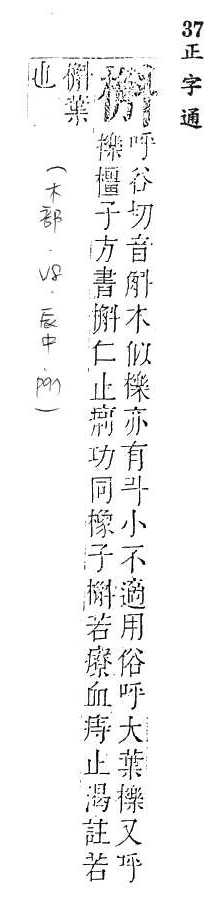 37正字通
槲
呼谷切音斛木似櫟亦有斗小不適用俗呼大葉櫟又呼
櫟橿子方書槲仁止痢功同橡子槲若療血痔止渴註若
槲葉
也
（木部．V8．辰中．P97）